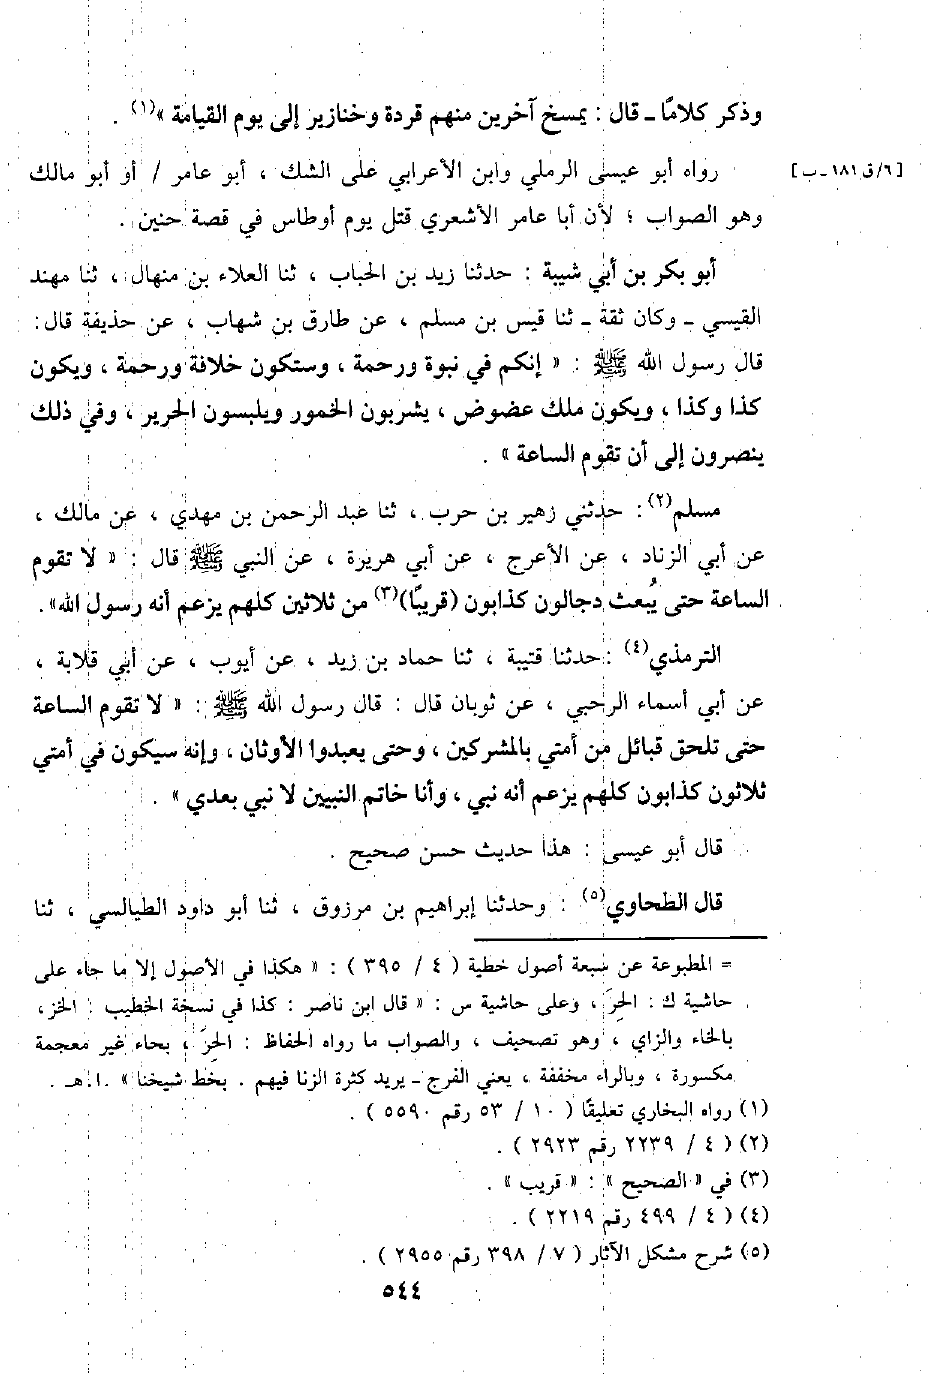 وذكر كلامًا ـ قال : يمسخ آخرين منهم قردة وخنازير إلى يوم القيامة »(١) .
[٦/ق ١٨١ـ ب]
رواه أبو عيسى الرملي وابن الأعرابي على الشك ، أبو عامر / أو أبو مالك
وهو الصواب ؛ لأن أبا عامر الأشعري قتل يوم أوطاس في قصة حنين .
أبو بكر بن أبي شيبة : حدثنا زيد بن الحباب ، ثنا العلاء بن منهال ، ثنا مهند
القيسي ـ وكان ثقة ـ ثنا قيس بن مسلم ، عن طارق بن شهاب ، عن حذيفة قال :
قال رسول الله ﷺ : « إنكم في نبوة ورحمة ، وستكون خلافة ورحمة ، ويكون
كذا وكذا ، ويكون ملك عضوض ، يشربون الخمور ويلبسون الحرير ، وفي ذلك
ينصرون إلى أن تقوم الساعة » .
مسلم(٢) : حدثني زهير بن حرب ، ثنا عبد الرحمن بن مهدي ، عن مالك ،
عن أبي الزناد ، عن الأعرج ، عن أبي هريرة ، عن النبي ﷺ قال : « لا تقوم
الساعة حتى يُبعث دجالون كذابون (قريبًا)(٣) من ثلاثين كلهم يزعم أنه رسول الله» .
الترمذي(٤) : حدثنا قتيبة ، ثنا حماد بن زيد ، عن أيوب ، عن أبي قلابة ،
عن أبي أسماء الرحبي ، عن ثوبان قال : قال رسول الله ﷺ : « لا تقوم الساعة
حتى تلحق قبائل من أمتي بالمشركين ، وحتى يعبدوا الأوثان ، وإنه سيكون في أمتي
ثلاثون كذابون كلهم يزعم أنه نبي ، وأنا خاتم النبيين لا نبي بعدي » .
قال أبو عيسى : هذا حديث حسن صحيح .
قال الطحاوي(٥) : وحدثنا إبراهيم بن مرزوق ، ثنا أبو داود الطيالسي ، ثنا
= المطبوعة عن سبعة أصول خطية ( ٤ / ٣٩٥ ) : « هكذا في الأصول إلا ما جاء على
حاشية ك : الحِرَ ، وعلى حاشية س : « قال ابن ناصر : كذا في نسخة الخطيب : الخز ،
بالخاء والزاي ، وهو تصحيف ، والصواب ما رواه الحفاظ : الحِرَ ، بحاء غير معجمة
مكسورة ، وبالراء مخففة ، يعني الفرج ـ يريد كثرة الزنا فيهم . بخط شيخنا » . ا.هـ .
(١) رواه البخاري تعليقًا ( ١٠ / ٥٣ رقم ٥٥٩٠ ) .
(٢) ( ٤ / ٢٢٣٩ رقم ٢٩٢٣ ) .
(٣) في « الصحيح » : « قريب » .
(٤) ( ٤ / ٤٩٩ رقم ٢٢١٩ ) .
(٥) شرح مشكل الآثار ( ٧ / ٣٩٨ رقم ٢٩٥٥ ) .
٥٤٤